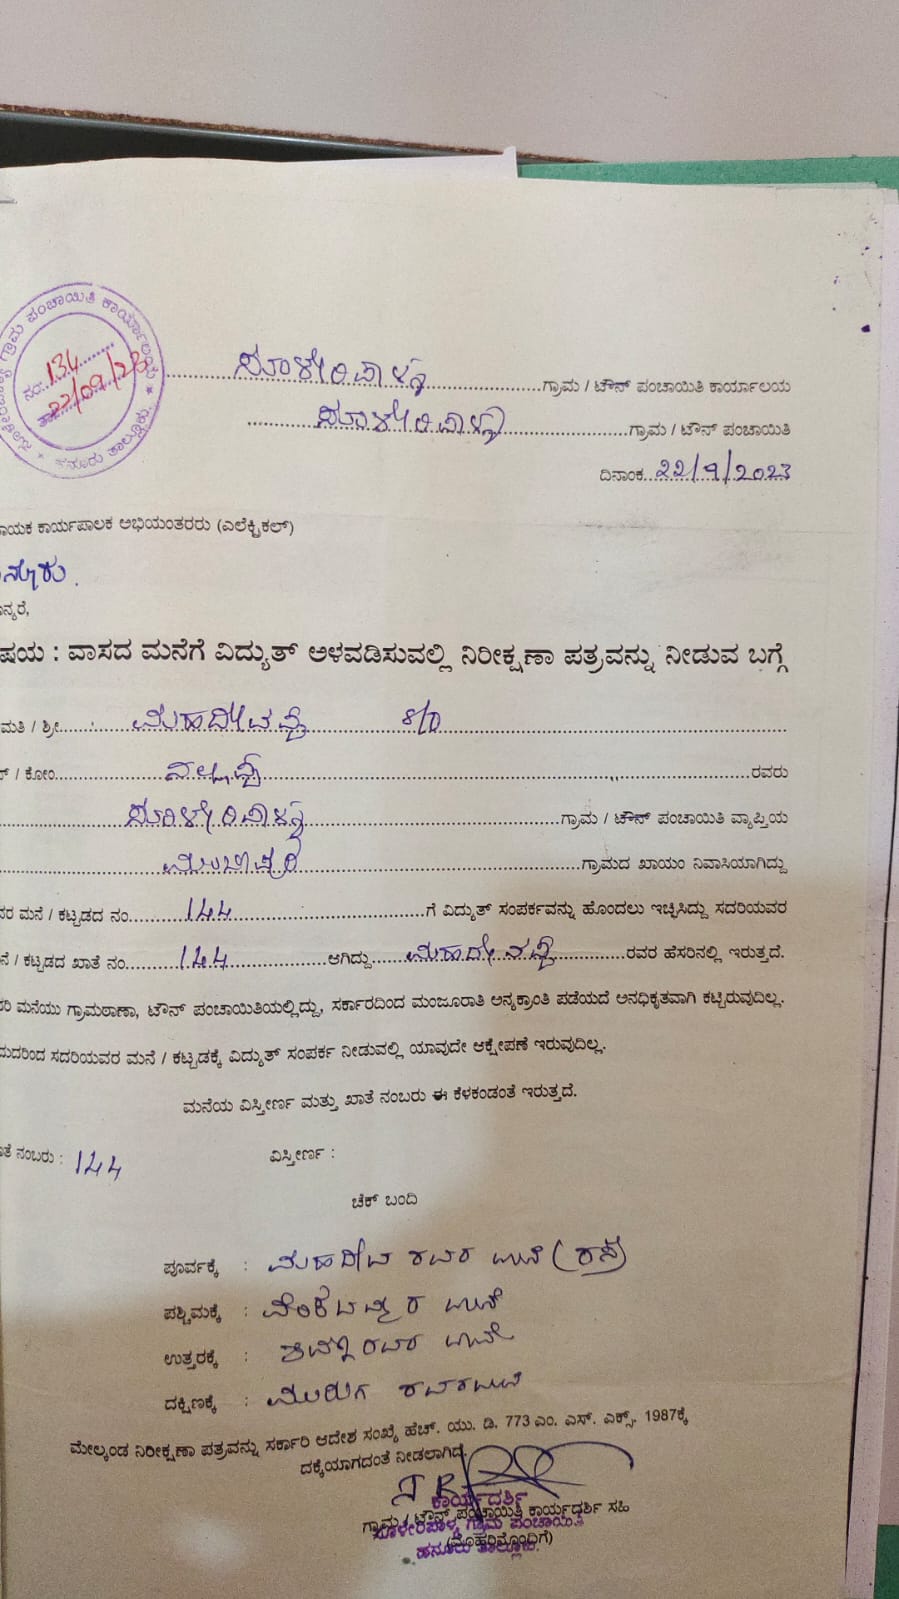 ಗ್ರಾಮ ಪಂಚಾಯಿತಿ ಕಾರ್ಯಾಲಯ
ಹನೂರು ತಾಲ್ಲೂಕು
ನಂ. 134
ತಾ. 22/09/23
ಸೂಳೇರಿಪಾಳ್ಯ ಗ್ರಾಮ / ಟೌನ್ ಪಂಚಾಯಿತಿ ಕಾರ್ಯಾಲಯ
ಸೂಳೇರಿಪಾಳ್ಯ ಗ್ರಾಮ / ಟೌನ್ ಪಂಚಾಯಿತಿ
ದಿನಾಂಕ 22/9/2023
ಾಯಕ ಕಾರ್ಯಪಾಲಕ ಅಭಿಯಂತರರು (ಎಲೆಕ್ಟ್ರಿಕಲ್)
ನ್ಯರೆ,
ಷಯ : ವಾಸದ ಮನೆಗೆ ವಿದ್ಯುತ್ ಅಳವಡಿಸುವಲ್ಲಿ ನಿರೀಕ್ಷಣಾ ಪತ್ರವನ್ನು ನೀಡುವ ಬಗ್ಗೆ
ಮತಿ / ಶ್ರೀ. ಮಹದೇವಪ್ಪ S/O
/ ಕೋಂ ರವರು
ಸೂಳೇರಿಪಾಳ್ಯ ಗ್ರಾಮ / ಟೌನ್ ಪಂಚಾಯಿತಿ ವ್ಯಾಪ್ತಿಯ
ಗ್ರಾಮದ ಖಾಯಂ ನಿವಾಸಿಯಾಗಿದ್ದು
ವರ ಮನೆ / ಕಟ್ಟಡದ ನಂ. 144 ಗೆ ವಿದ್ಯುತ್ ಸಂಪರ್ಕವನ್ನು ಹೊಂದಲು ಇಚ್ಛಿಸಿದ್ದು ಸದರಿಯವರ
ನೆ / ಕಟ್ಟಡದ ಖಾತೆ ನಂ. 144 ಆಗಿದ್ದು ಮಹದೇವಪ್ಪ ರವರ ಹೆಸರಿನಲ್ಲಿ ಇರುತ್ತದೆ.
ರಿ ಮನೆಯು ಗ್ರಾಮಠಾಣಾ, ಟೌನ್ ಪಂಚಾಯಿತಿಯಲ್ಲಿದ್ದು, ಸರ್ಕಾರದಿಂದ ಮಂಜೂರಾತಿ ಅನ್ಯಕ್ರಾಂತಿ ಪಡೆಯದೆ ಅನಧಿಕೃತವಾಗಿ ಕಟ್ಟಿರುವುದಿಲ್ಲ.
ುದರಿಂದ ಸದರಿಯವರ ಮನೆ / ಕಟ್ಟಡಕ್ಕೆ ವಿದ್ಯುತ್ ಸಂಪರ್ಕ ನೀಡುವಲ್ಲಿ ಯಾವುದೇ ಆಕ್ಷೇಪಣೆ ಇರುವುದಿಲ್ಲ.
ಮನೆಯ ವಿಸ್ತೀರ್ಣ ಮತ್ತು ಖಾತೆ ನಂಬರು ಈ ಕೆಳಕಂಡಂತೆ ಇರುತ್ತದೆ.
ತೆ ನಂಬರು : 144 ವಿಸ್ತೀರ್ಣ :
ಚೆಕ್ ಬಂದಿ
ಪೂರ್ವಕ್ಕೆ : ಮಹದೇವ ರವರ ಮನೆ (ರಸ್ತೆ)
ಪಶ್ಚಿಮಕ್ಕೆ : ಮನೆ
ಉತ್ತರಕ್ಕೆ : ರವರ ಮನೆ
ದಕ್ಷಿಣಕ್ಕೆ : ಮುರುಗ ರವರ ಮನೆ
ಮೇಲ್ಕಂಡ ನಿರೀಕ್ಷಣಾ ಪತ್ರವನ್ನು ಸರ್ಕಾರಿ ಆದೇಶ ಸಂಖ್ಯೆ ಹೆಚ್. ಯು. ಡಿ. 773 ಎಂ. ಎಸ್. ಎಕ್ಸ್. 1987ಕ್ಕೆ
ದಕ್ಕೆಯಾಗದಂತೆ ನೀಡಲಾಗಿದೆ.
ಕಾರ್ಯದರ್ಶಿ
ಗ್ರಾಮ / ಟೌನ್ ಪಂಚಾಯಿತಿ ಕಾರ್ಯದರ್ಶಿ ಸಹಿ
ಸೂಳೇರಿಪಾಳ್ಯ ಗ್ರಾಮ ಪಂಚಾಯಿತಿ
(ಮೊಹರಿನೊಂದಿಗೆ)
ಹನೂರು ತಾಲ್ಲೂಕು.